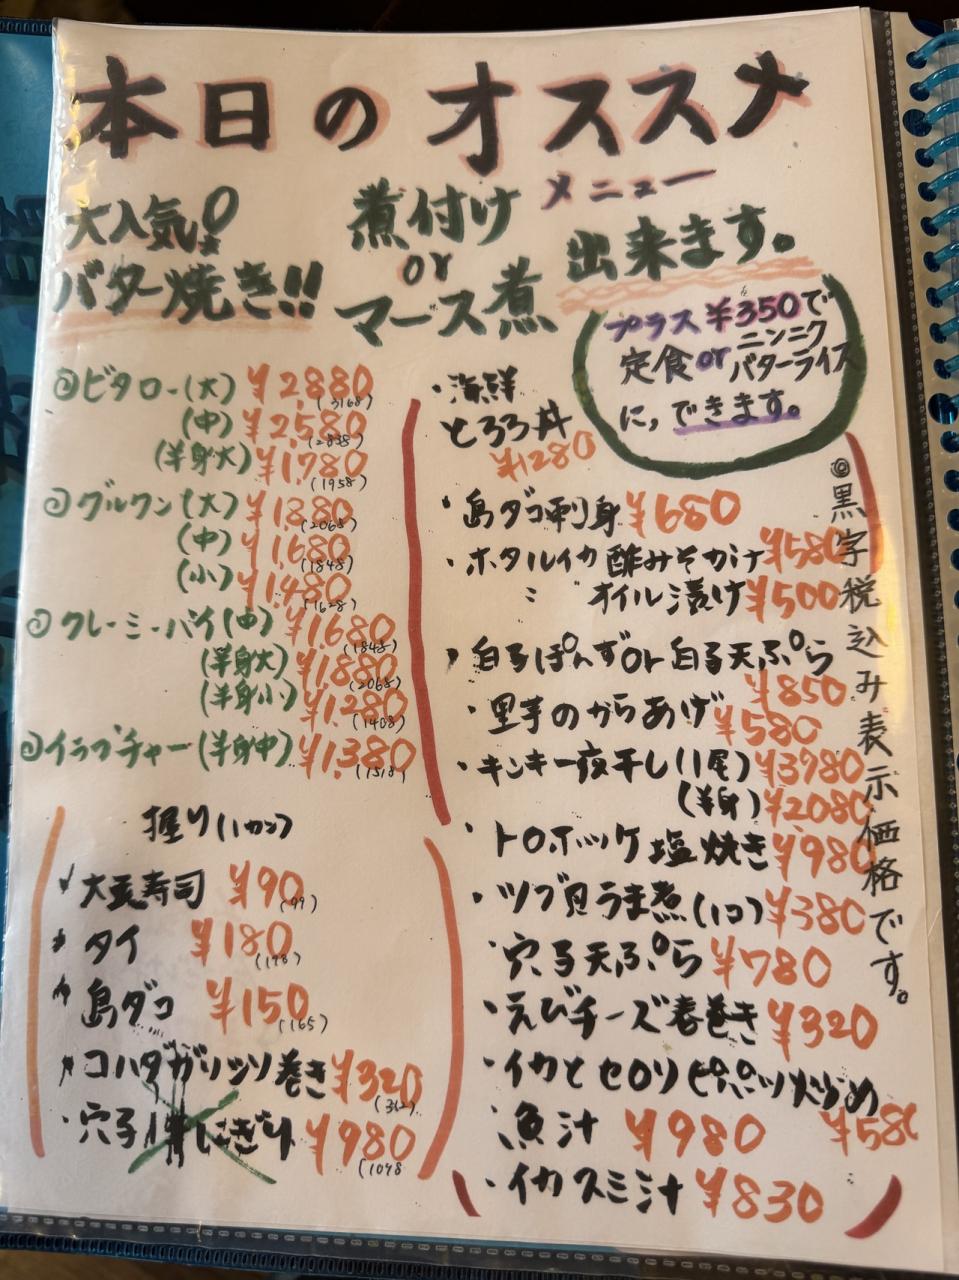 本日のオススメ
メニュー
大人気!
バター焼き!!
煮付け
or
マース煮
出来ます。
プラス¥350で
定食orニンニク
バターライス
に,できます。
ビタロー(大) ¥2880 (3168)
(中) ¥2580 (2838)
(半身大) ¥1780 (1958)
グルクン(大) ¥1880 (2068)
(中) ¥1680 (1848)
(小) ¥1480 (1628)
クレーミーバイ(中) ¥1680 (1848)
(半身大) ¥1880 (2068)
(半身小) ¥1280 (1408)
イラブチャー(半身中) ¥1380 (1518)
握り(1カン)
大東寿司 ¥90 (99)
タイ ¥180 (198)
島ダコ ¥150 (165)
コハダガリッソ巻き ¥320
穴子 にぎり ¥980
・海鮮
とろろ丼
¥1280
・島ダコ刺身 ¥680
・ホタルイカ酢みそかけ ¥580
〃 オイル漬け ¥500
・白子ぽんずor白子天ぷら
¥850
・里芋のからあげ ¥580
・キンキ一夜干し(1尾) ¥3980
(半身) ¥2080
・トロホッケ塩焼き ¥980
・ツブ貝うま煮(1コ) ¥380
・穴子天ぷら ¥780
・えびチーズ春巻き ¥320
・イカとセロリ 炒め
¥580
・魚汁 ¥980
・イカスミ汁 ¥830
◎黒字税込み表示価格です。